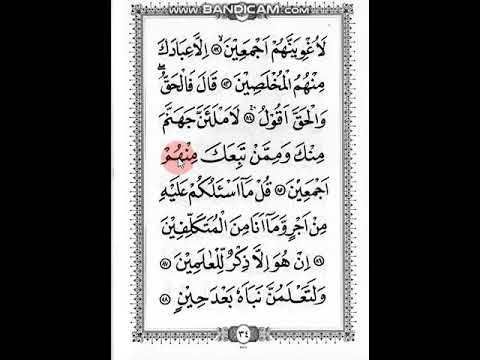 WWW.BANDICAM.COM
لَاُغْوِيَنَّهُمْ اَجْمَعِيْنَ ۝٨٢ اِلَّا عِبَادَكَ
مِنْهُمُ الْمُخْلَصِيْنَ ۝٨٣ قَالَ فَالْحَقُّ ۖ
وَالْحَقَّ اَقُوْلُ ۝٨٤ لَاَمْلَئَنَّ جَهَنَّمَ
مِنْكَ وَمِمَّنْ تَبِعَكَ مِنْهُمْ
اَجْمَعِيْنَ ۝٨٥ قُلْ مَآ اَسْئَلُكُمْ عَلَيْهِ
مِنْ اَجْرٍ وَّمَآ اَنَا مِنَ الْمُتَكَلِّفِيْنَ
۝٨٦ اِنْ هُوَ اِلَّا ذِكْرٌ لِّلْعٰلَمِيْنَ ۝٨٧
وَلَتَعْلَمُنَّ نَبَاَهٗ بَعْدَ حِيْنٍ ۝٨٨
٣٤